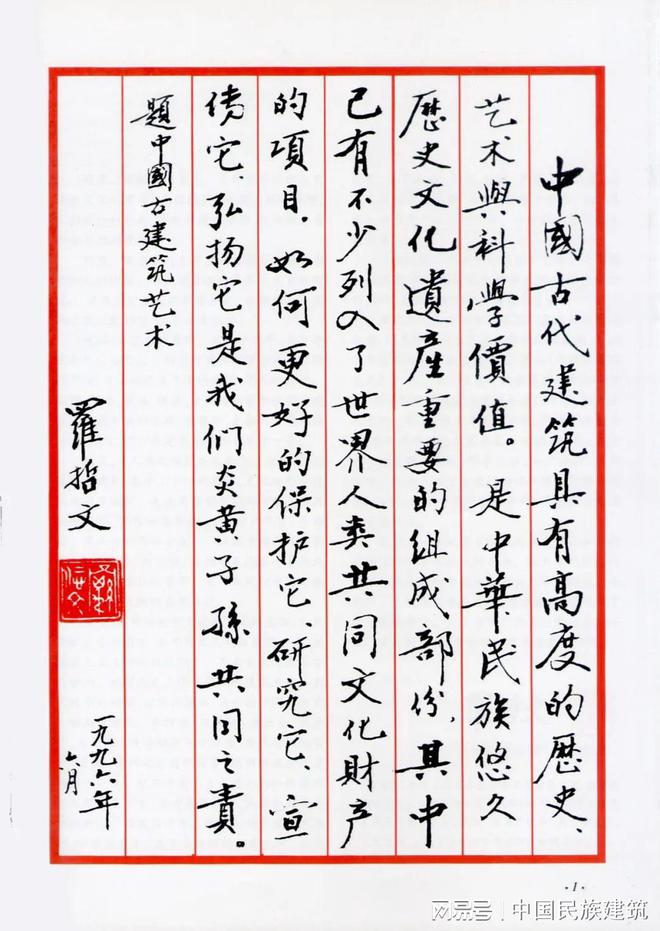 中國古代建筑具有高度的歷史、
艺术與科學價值。是中華民族悠久
歷史文化遺產重要的组成部份,其中
已有不少列入了世界人类共同文化财产
的項目。如何更好的保护它、研究它、宣
傳它、弘扬它是我们炎黄子孫共同之責。
題中國古建筑艺术
羅哲文
一九九六年
六月
·1·
网易号 | 中国民族建筑